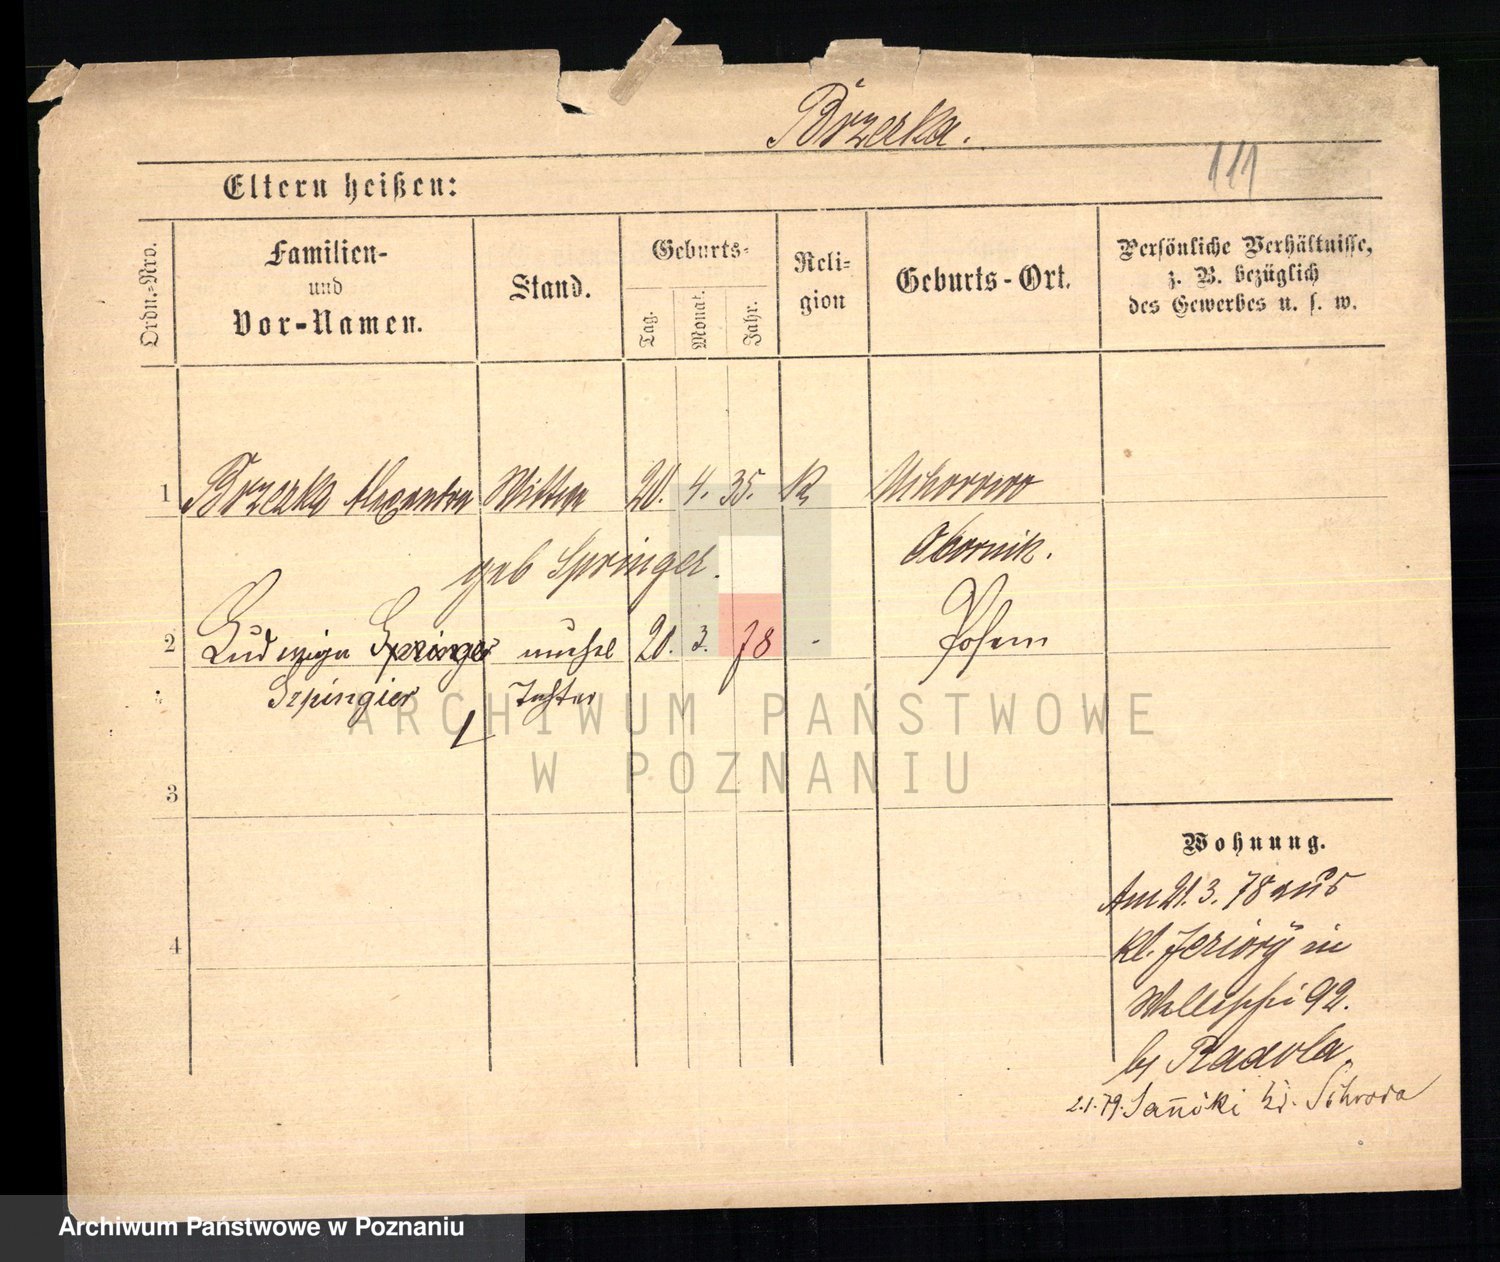 Brzerka.
111
Eltern heißen:
Ordn.-Nro.
Familien-
und
Vor-Namen.
Stand.
Geburts-
Tag.
Monat.
Jahr.
Reli-
gion
Geburts-Ort.
Persönliche Verhältnisse,
z. B. bezüglich
des Gewerbes u. s. w.
1 Brzerka Alexandra Wittwe 20. 4. 35. K
geb Springer. Obornik.
2 Ludwiga Springer unehel 20. 3. 78 - Posen
Szpingier Tochter
3
4
Wohnung.
Am 21. 3. 78 aus
Kl. Jeziory in
Wallischei 92.
by Radola.
2.1.79. Kr. Schroda
ARCHIWUM PAŃSTWOWE
W POZNANIU
Archiwum Państwowe w Poznaniu